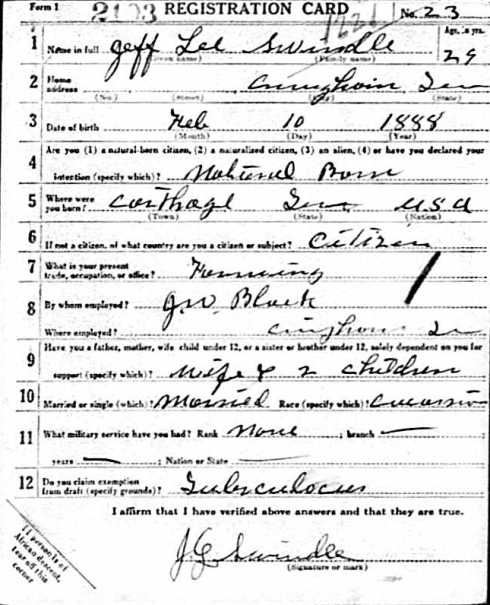 Form 1 2103 REGISTRATION CARD No. 23
1 Name in full Jeff Lee Swindle Age, in yrs.
(Given name) (Family name) 29
2 Home address Tenn
(No.) (Street) (State)
3 Date of birth Feb 10 1888
(Month) (Day) (Year)
4 Are you (1) a natural-born citizen, (2) a naturalized citizen, (3) an alien, (4) or have you declared your
intention (specify which)? Natural Born
5 Where were you born? Carthage Tenn USA
(Town) (State) (Nation)
6 If not a citizen, of what country are you a citizen or subject? Citizen
7 What is your present trade, occupation, or office? Farming
8 By whom employed? J.W. Black
Where employed? Tenn
9 Have you a father, mother, wife child under 12, or a sister or brother under 12, solely dependent on you for
support (specify which)? Wife & 2 children
10 Married or single (which)? Married Race (specify which)? Caucasian
11 What military service have you had? Rank None ; branch —
years — ; Nation or State —
12 Do you claim exemption from draft (specify grounds)? Tuberculocus
I affirm that I have verified above answers and that they are true.
Swindle
(Signature or mark)
If person is of
African descent,
tear off this
corner